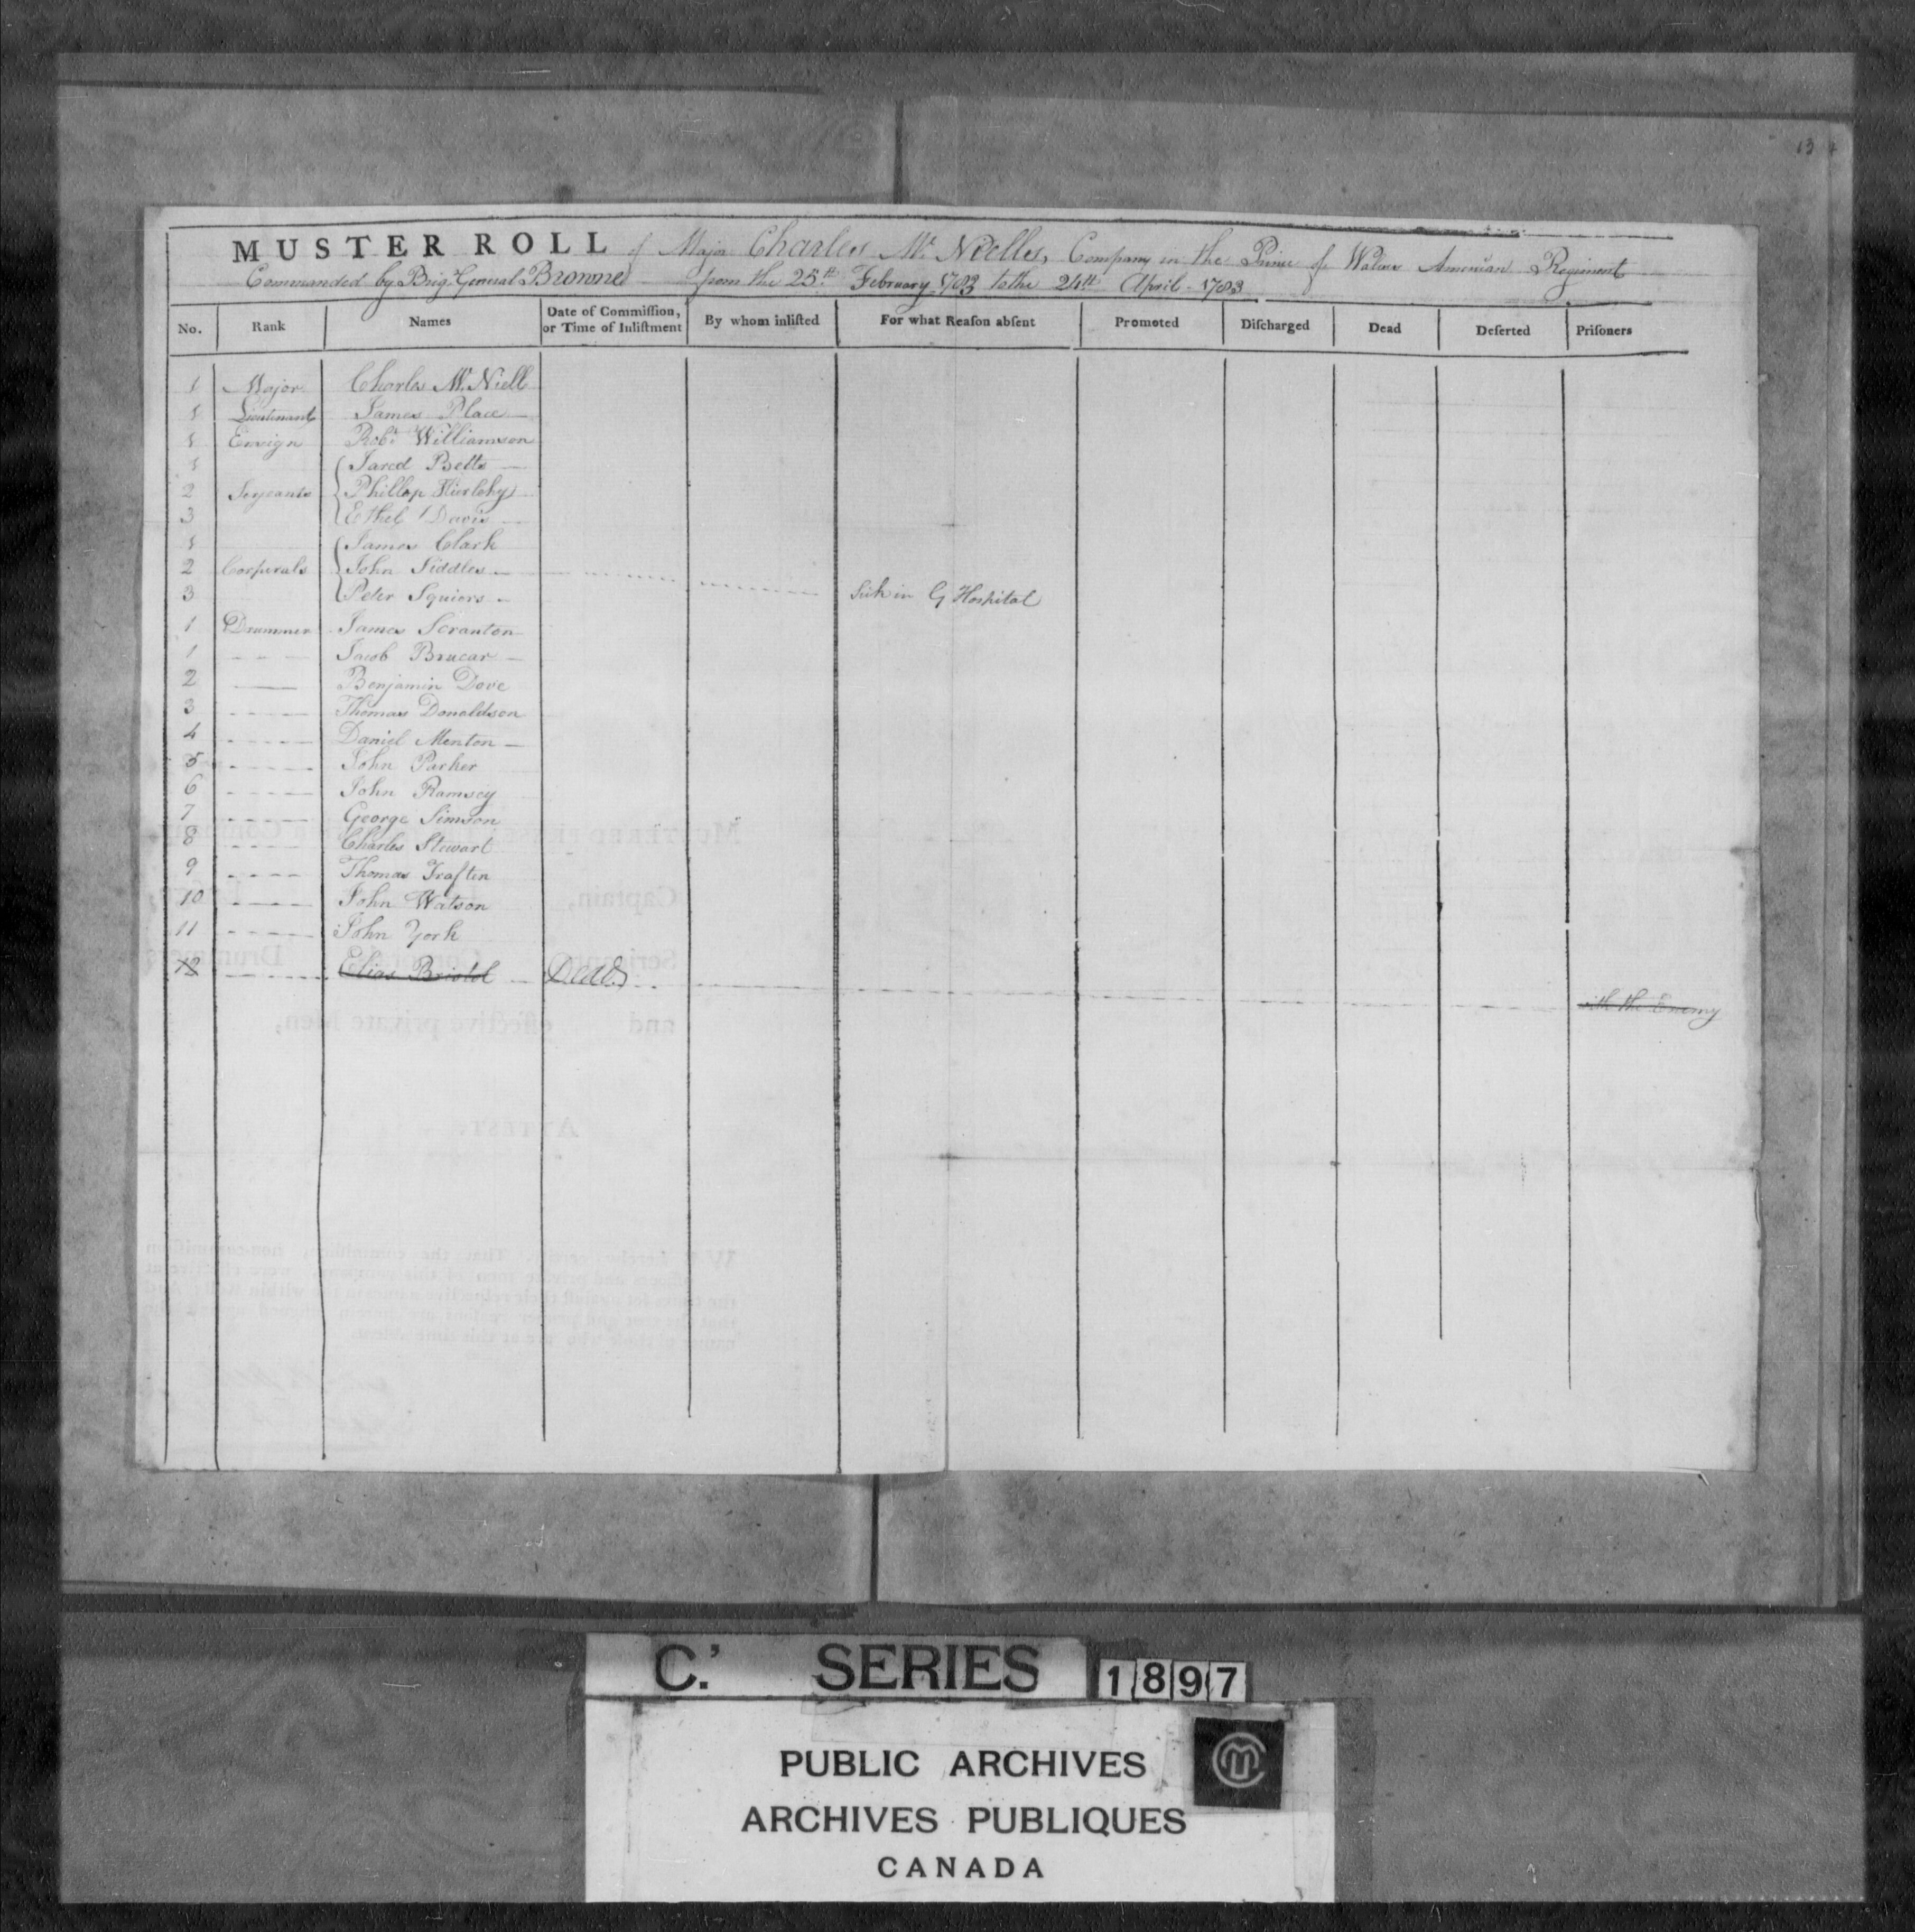 13
MUSTER ROLL of Major Charles Mc. Niells, Company in the Prince of Wales American Regiment
Commanded by Brig. General Browne from the 25th February 1783 to the 24th April 1783
No. Rank Names Date of Commiſſion, or Time of Inliſtment By whom inliſted For what Reaſon abſent Promoted Diſcharged Dead Deſerted Priſoners
1 Major Charles Mc. Niell
1 Lieutenant James Place
1 Ensign Robt. Williamson
1 Jared Betts
2 Serjeants Phillop Hierlehy
3 Ethel Davis
1 James Clark
2 Corporals John Siddles
3 Peter Squiers Sick in G Hospital
1 Drummer James Scranton
1 Jacob Brucar
2 Benjamin Dove
3 Thomas Donaldson
4 Daniel Menton
5 John Parker
6 John Ramsey
7 George Simson
8 Charles Stewart
9 Thomas Traften
10 John Watson
11 John York
12 Elias Bristol Dead with the Enemy
C.' SERIES 1897
PUBLIC ARCHIVES
ARCHIVES PUBLIQUES
CANADA